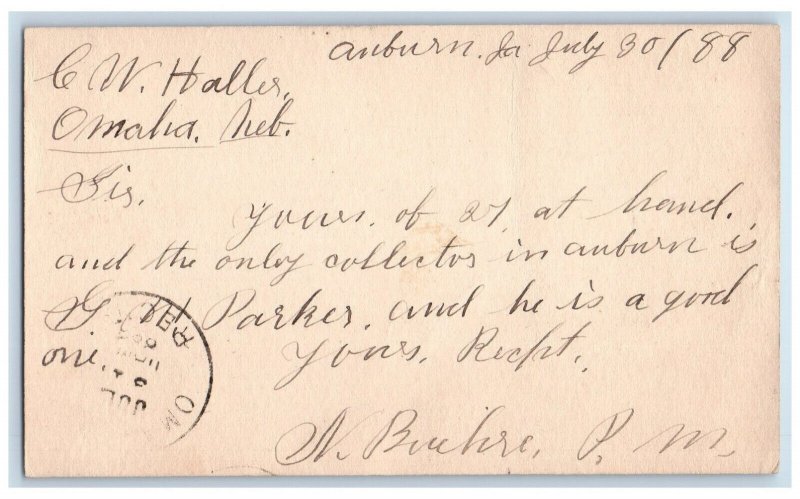 Auburn. Ia July 30/88
C W. Haller,
Omaha. Neb.
Sir.
Yours. of 27, at hand.
and the only collector in auburn is
G. W Parker, and he is a good
one,
Yours, Recpt.,
N. P. M.
REC
OM
JUL